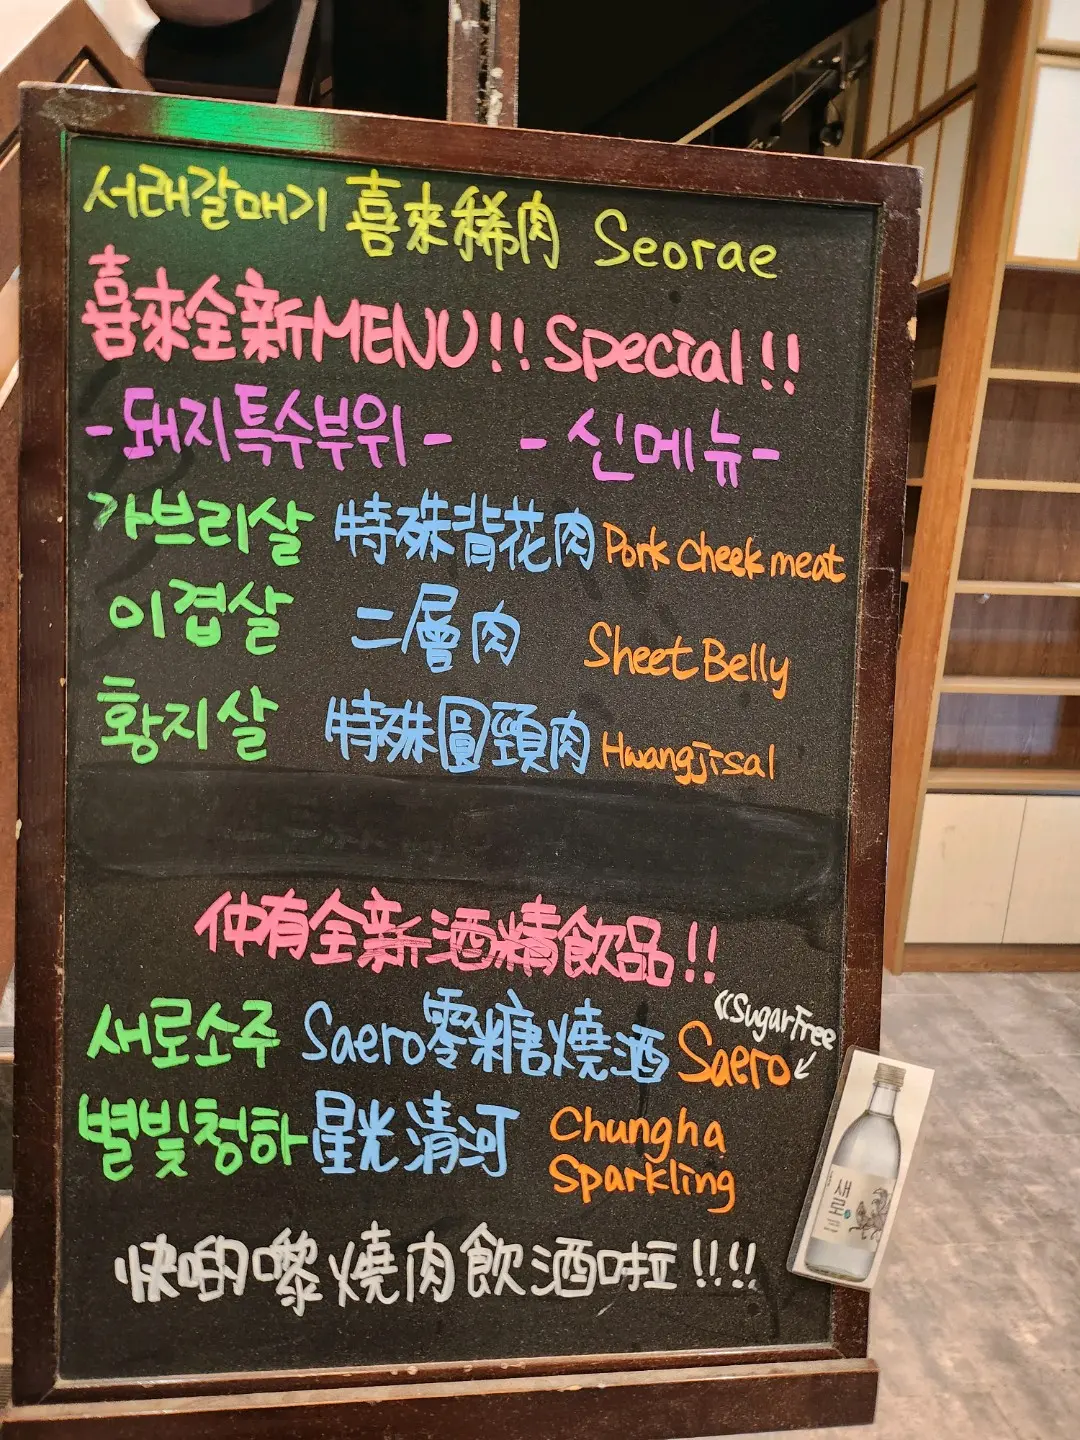 서래갈매기 喜來稀肉 Seorae
喜來全新MENU!! Special!!
-돼지특수부위- -신메뉴-
가브리살 特殊背花肉 Pork cheek meat
이겹살 二層肉 Sheet Belly
황지살 特殊圓頸肉 Hwangjisal
仲有全新酒精飲品!!
《SugarFree
새로소주 Saero零糖燒酒 Saero
별빛청하 星光清河 Chungha
Sparkling
새로
快啲嚟燒肉飲酒啦!!!!